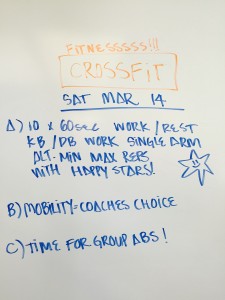 FITNESSSSS!!!
CROSSFIT
SAT MAR 14
A) 10 x 60sec WORK/REST
KB/DB WORK SINGLE ARM
ALT-MIN MAX REPS
WITH HAPPY STARS!
B) MOBILITY=COACHES CHOICE
C) TIME FOR GROUP ABS!